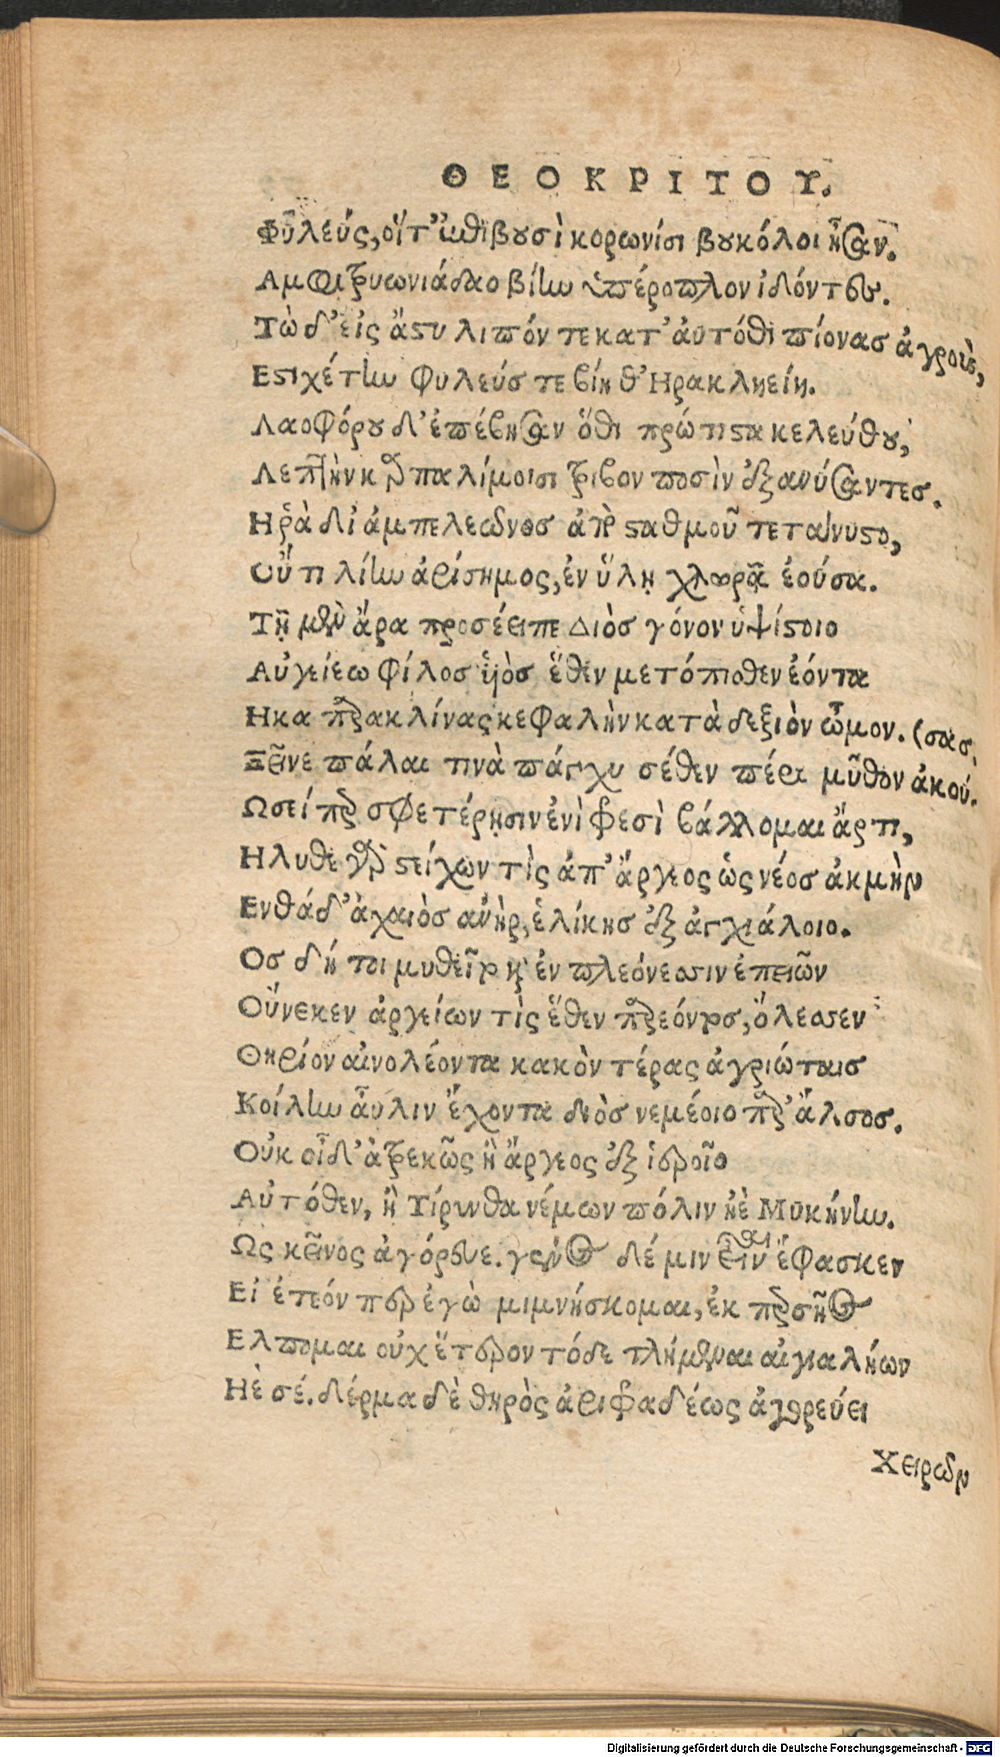 ΘΕΟΚΡΙΤΟΥ.
Φῦλεύς, οἵτ' ἐπὶ βουσὶ κορωνίσι βουκόλοι ἦσαν.
Αμφιτρυωνιάδαο βίην ὑπέροπλον ἰδόντες.
Τὼ δ' εἰς ἄστυ λιπόν τε κατ' ἀυτόθι πίονασ ἀγροὺς,
Εστιχέτην φυλεύσ τε βίη θ' Ηρακληείη.
Λαοφόρου δ' ἐπέβησαν ὅθι πρώτιστα κελεύθου,
Λεπτὴν καρπαλίμοισι τρίβον ποσὶν ἐξανύσαντες.
Ηῥὰ δι' ἀμπελεῶνοσ ἀπὸ σταθμοῦ τετάνυστο,
Οὔτι λίην ἀρίσημος, ἐν ὕλῃ χλωρᾷ ἐούσα.
Τῇ μὲν ἄρα προσέειπε Διὸσ γόνον ὑψίστοιο
Αὐγείεω φίλοσ υἱὸσ ἕθεν μετόπιοθεν ἐόντα
Ηκα παρακλίνας κεφαλὴν κατὰ δεξιὸν ὦμον. (σασ.
Ξεῖνε πάλαι τινὰ πάγχυ σέθεν πέρι μῦθον ἀκού.
Ωσεί περ σφετέρῃσιν ἐνὶ φρεσὶ βάλλομαι ἄρτι,
Ηλυθε γὰρ στείχων τὶς ἀπ' ἄργεος ὡς νέοσ ἀκμὴν
Ενθάδ' ἀχαιὸσ ἀνὴρ, ἑλίκησ ἐξ ἀγχιάλοιο.
Οσ δή τοι μυθεῖτο καὶ ἐν πλεόνεσσιν ἐπειῶν
Οὕνεκεν ἀργείων τὶς ἕθεν παρεόντοσ, ὄλεσσεν
Θηρίον αἰνολέοντα κακὸν τέρας ἀγριώταισ
Κοίλην αὖλιν ἔχοντα διὸσ νεμέοιο παρ' ἄλσοσ.
Οὐκ οἶδ' ἀτρεκῶς ἢ ἄργεος ἐξ ἱεροῖο
Αὐτόθεν, ἢ Τίρυνθα νέμων πόλιν ἠὲ Μυκήνην.
Ως κεῖνος ἀγόρευε. γενὴν δέ μιν εἶναι ἔφασκεν
Εἰ ἐτεόν περ ἐγὼ μιμνήσκομαι, ἐκ περσῆος
Ελπομαι οὐχ ἕτερον τόδε τλήμεναι αἰγιαλήων
Ηὲ σέ. δέρμα δὲ θηρὸς ἀριφραδέως ἀγορεύει
Χειρῶν
Digitalisierung gefördert durch die Deutsche Forschungsgemeinschaft - DFG